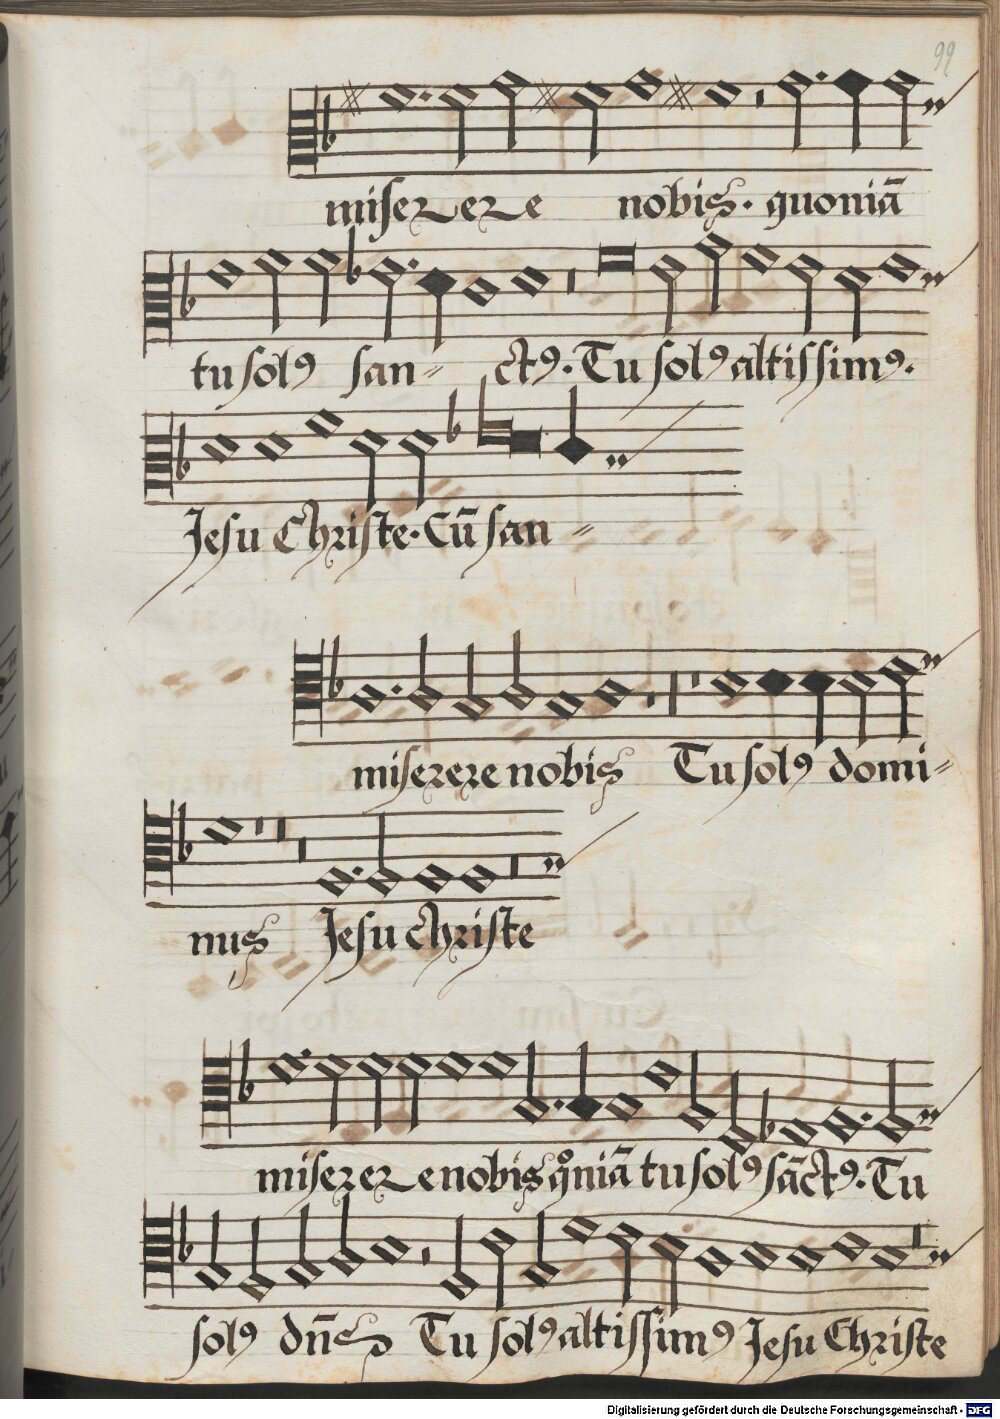 99
miserere nobis. quoniā
tu solꝰ san- ctꝰ. Tu solꝰ altissimꝰ.
Jesu Christe. Cū san-
miserere nobis Tu solꝰ domi-
nus Jesu christe
miserere nobis qͦniā tu solꝰ sāctꝰ. Tu
solꝰ dn̄s Tu solꝰ altissimꝰ Jesu Christe
Digitalisierung gefördert durch die Deutsche Forschungsgemeinschaft - DFG